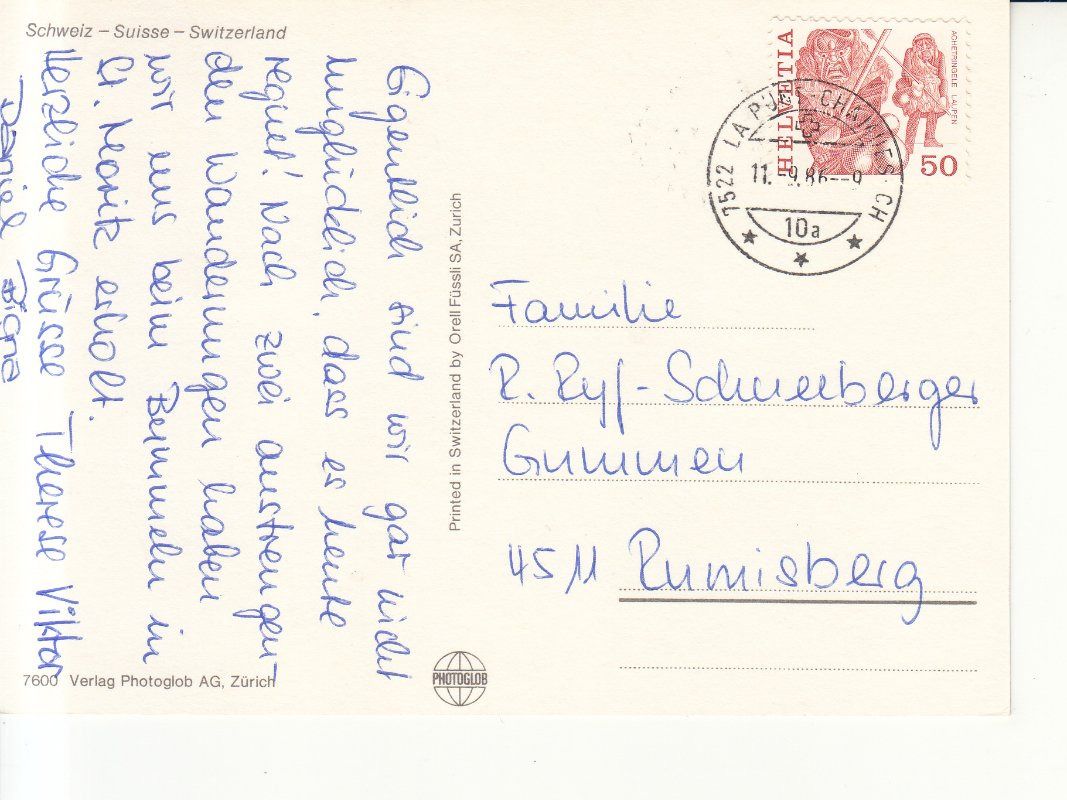 Schweiz – Suisse – Switzerland
Eigentlich sind wir gar nicht
unglücklich, dass es heute
regnet! Nach zwei anstrengen-
den Wanderungen haben
wir uns beim Bummeln in
St. Moritz erholt.
Herzliche Grüsse Therese Viktor
Daniel
7600 Verlag Photoglob AG, Zürich
Printed in Switzerland by Orell Füssli SA, Zurich
PHOTOGLOB
HELVETIA
ACHETRINGELE LAUPEN
50
7522 LA PUNT-CHAMUES-CH
11.-9.86--9
10a
Familie
R. Ryf-Schneeberger
Gummen
4511 Rumisberg